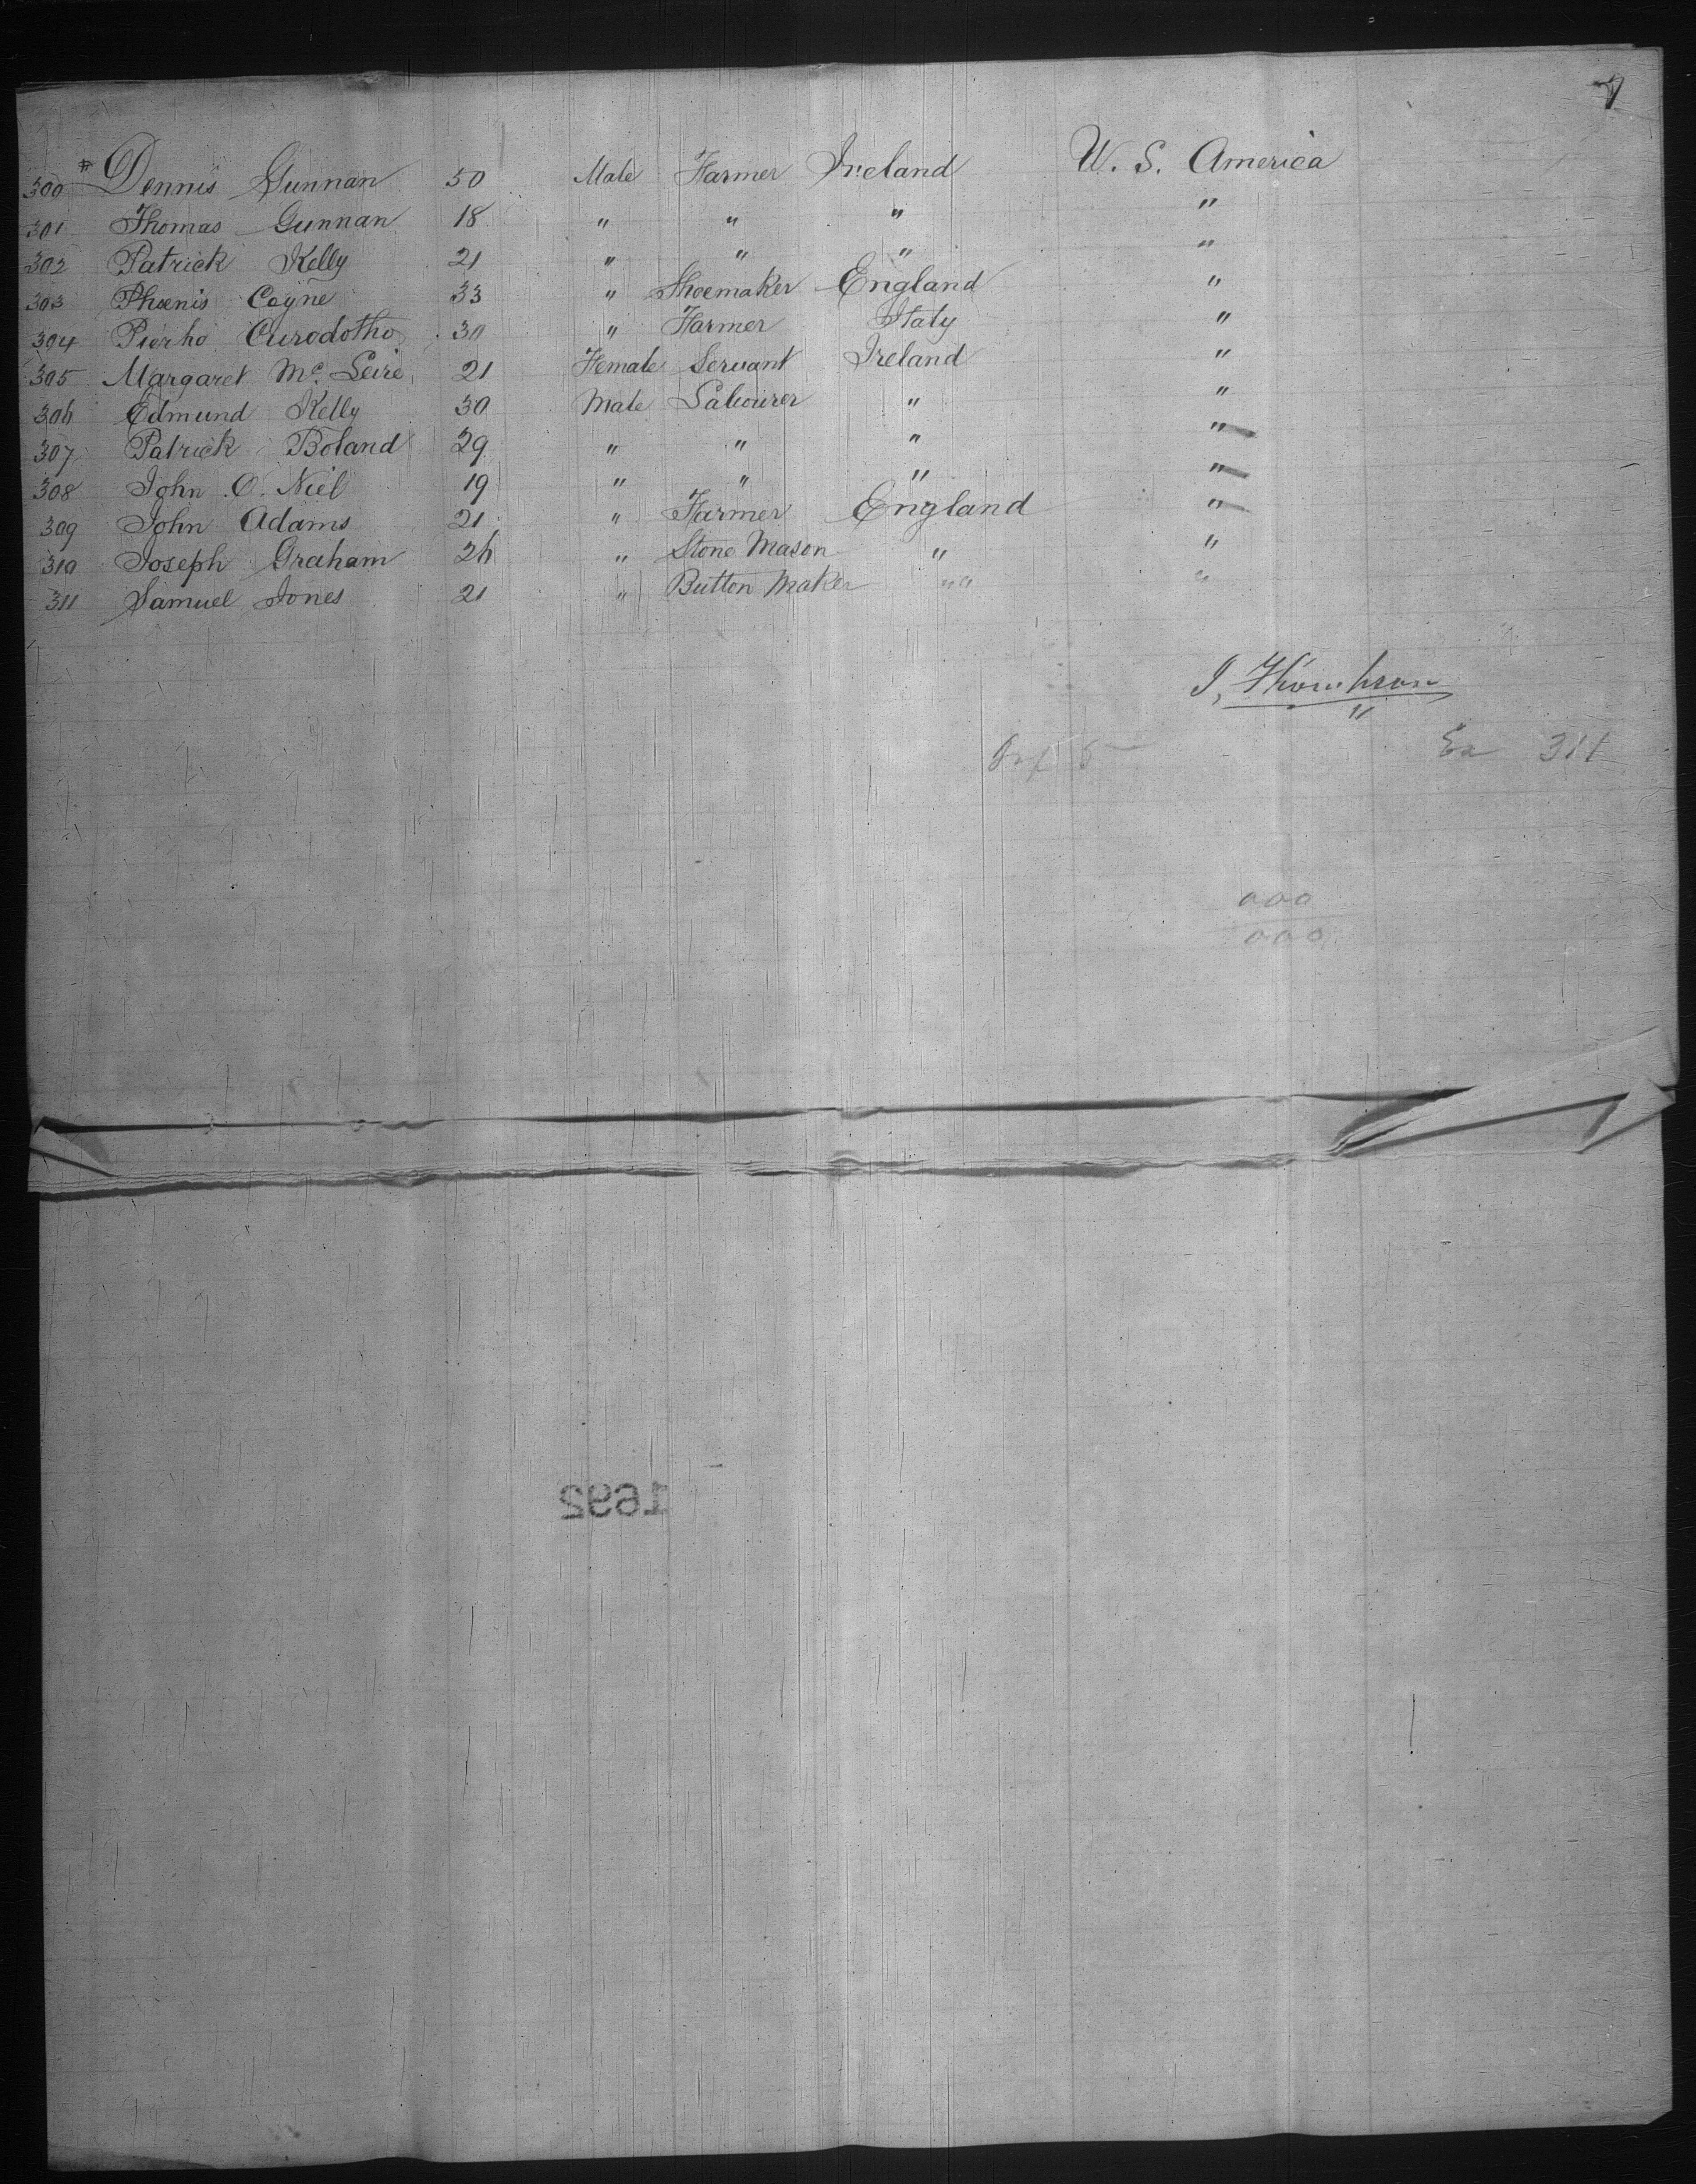 7
300 Dennis Gunnan 50 Male Farmer Ireland U. S. America
301 Thomas Gunnan 18 " " " "
302 Patrick Kelly 21 " " " "
303 Phœnis Coyne 33 " Shoemaker England "
304 Pierho Curodotho 30 " Farmer Italy "
305 Margaret Mc. Leire 21 Female Servant Ireland "
306 Edmund Kelly 30 Male Labourer " "
307 Patrick Boland 29 " " " "
308 John O. Niel 19 " " " "
309 John Adams 21 " Farmer England "
310 Joseph Graham 26 " Stone Mason " "
311 Samuel Jones 21 " Button Maker " "
J, Thomhson
Ex 311
000
000
1692